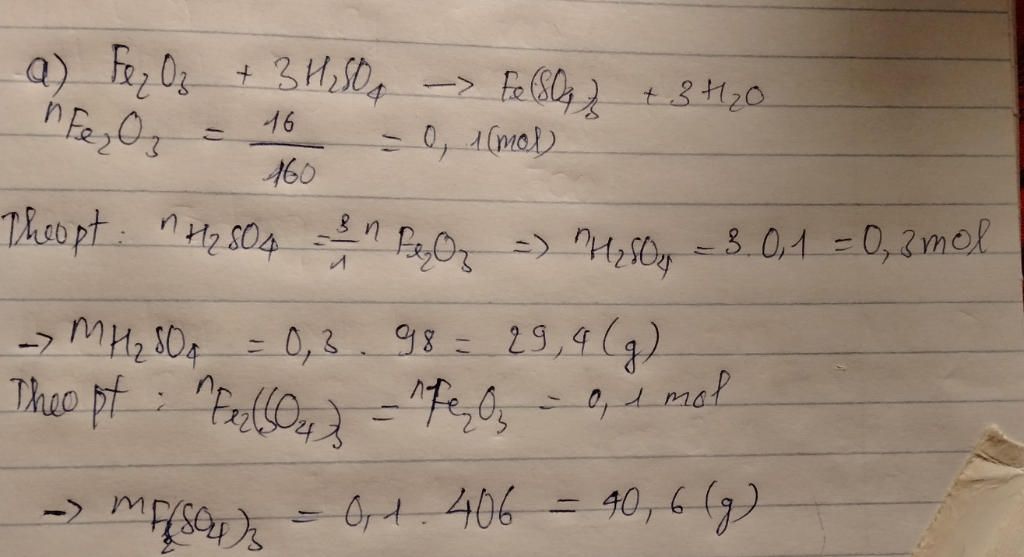 a) Fe₂O₃ + 3H₂SO₄ → Fe(SO₄)₃ + 3H₂O
nFe₂O₃ = 16/160 = 0,1(mol)
Theo pt : nH₂SO₄ = 3/1 n Fe₂O₃ => nH₂SO₄ = 3.0,1 = 0,3mol
→ mH₂SO₄ = 0,3 . 98 = 29,4 (g)
Theo pt : nFe₂(SO₄)₃ = nFe₂O₃ = 0,1 mol
→ mF₂(SO₄)₃ = 0,1 . 406 = 40,6 (g)